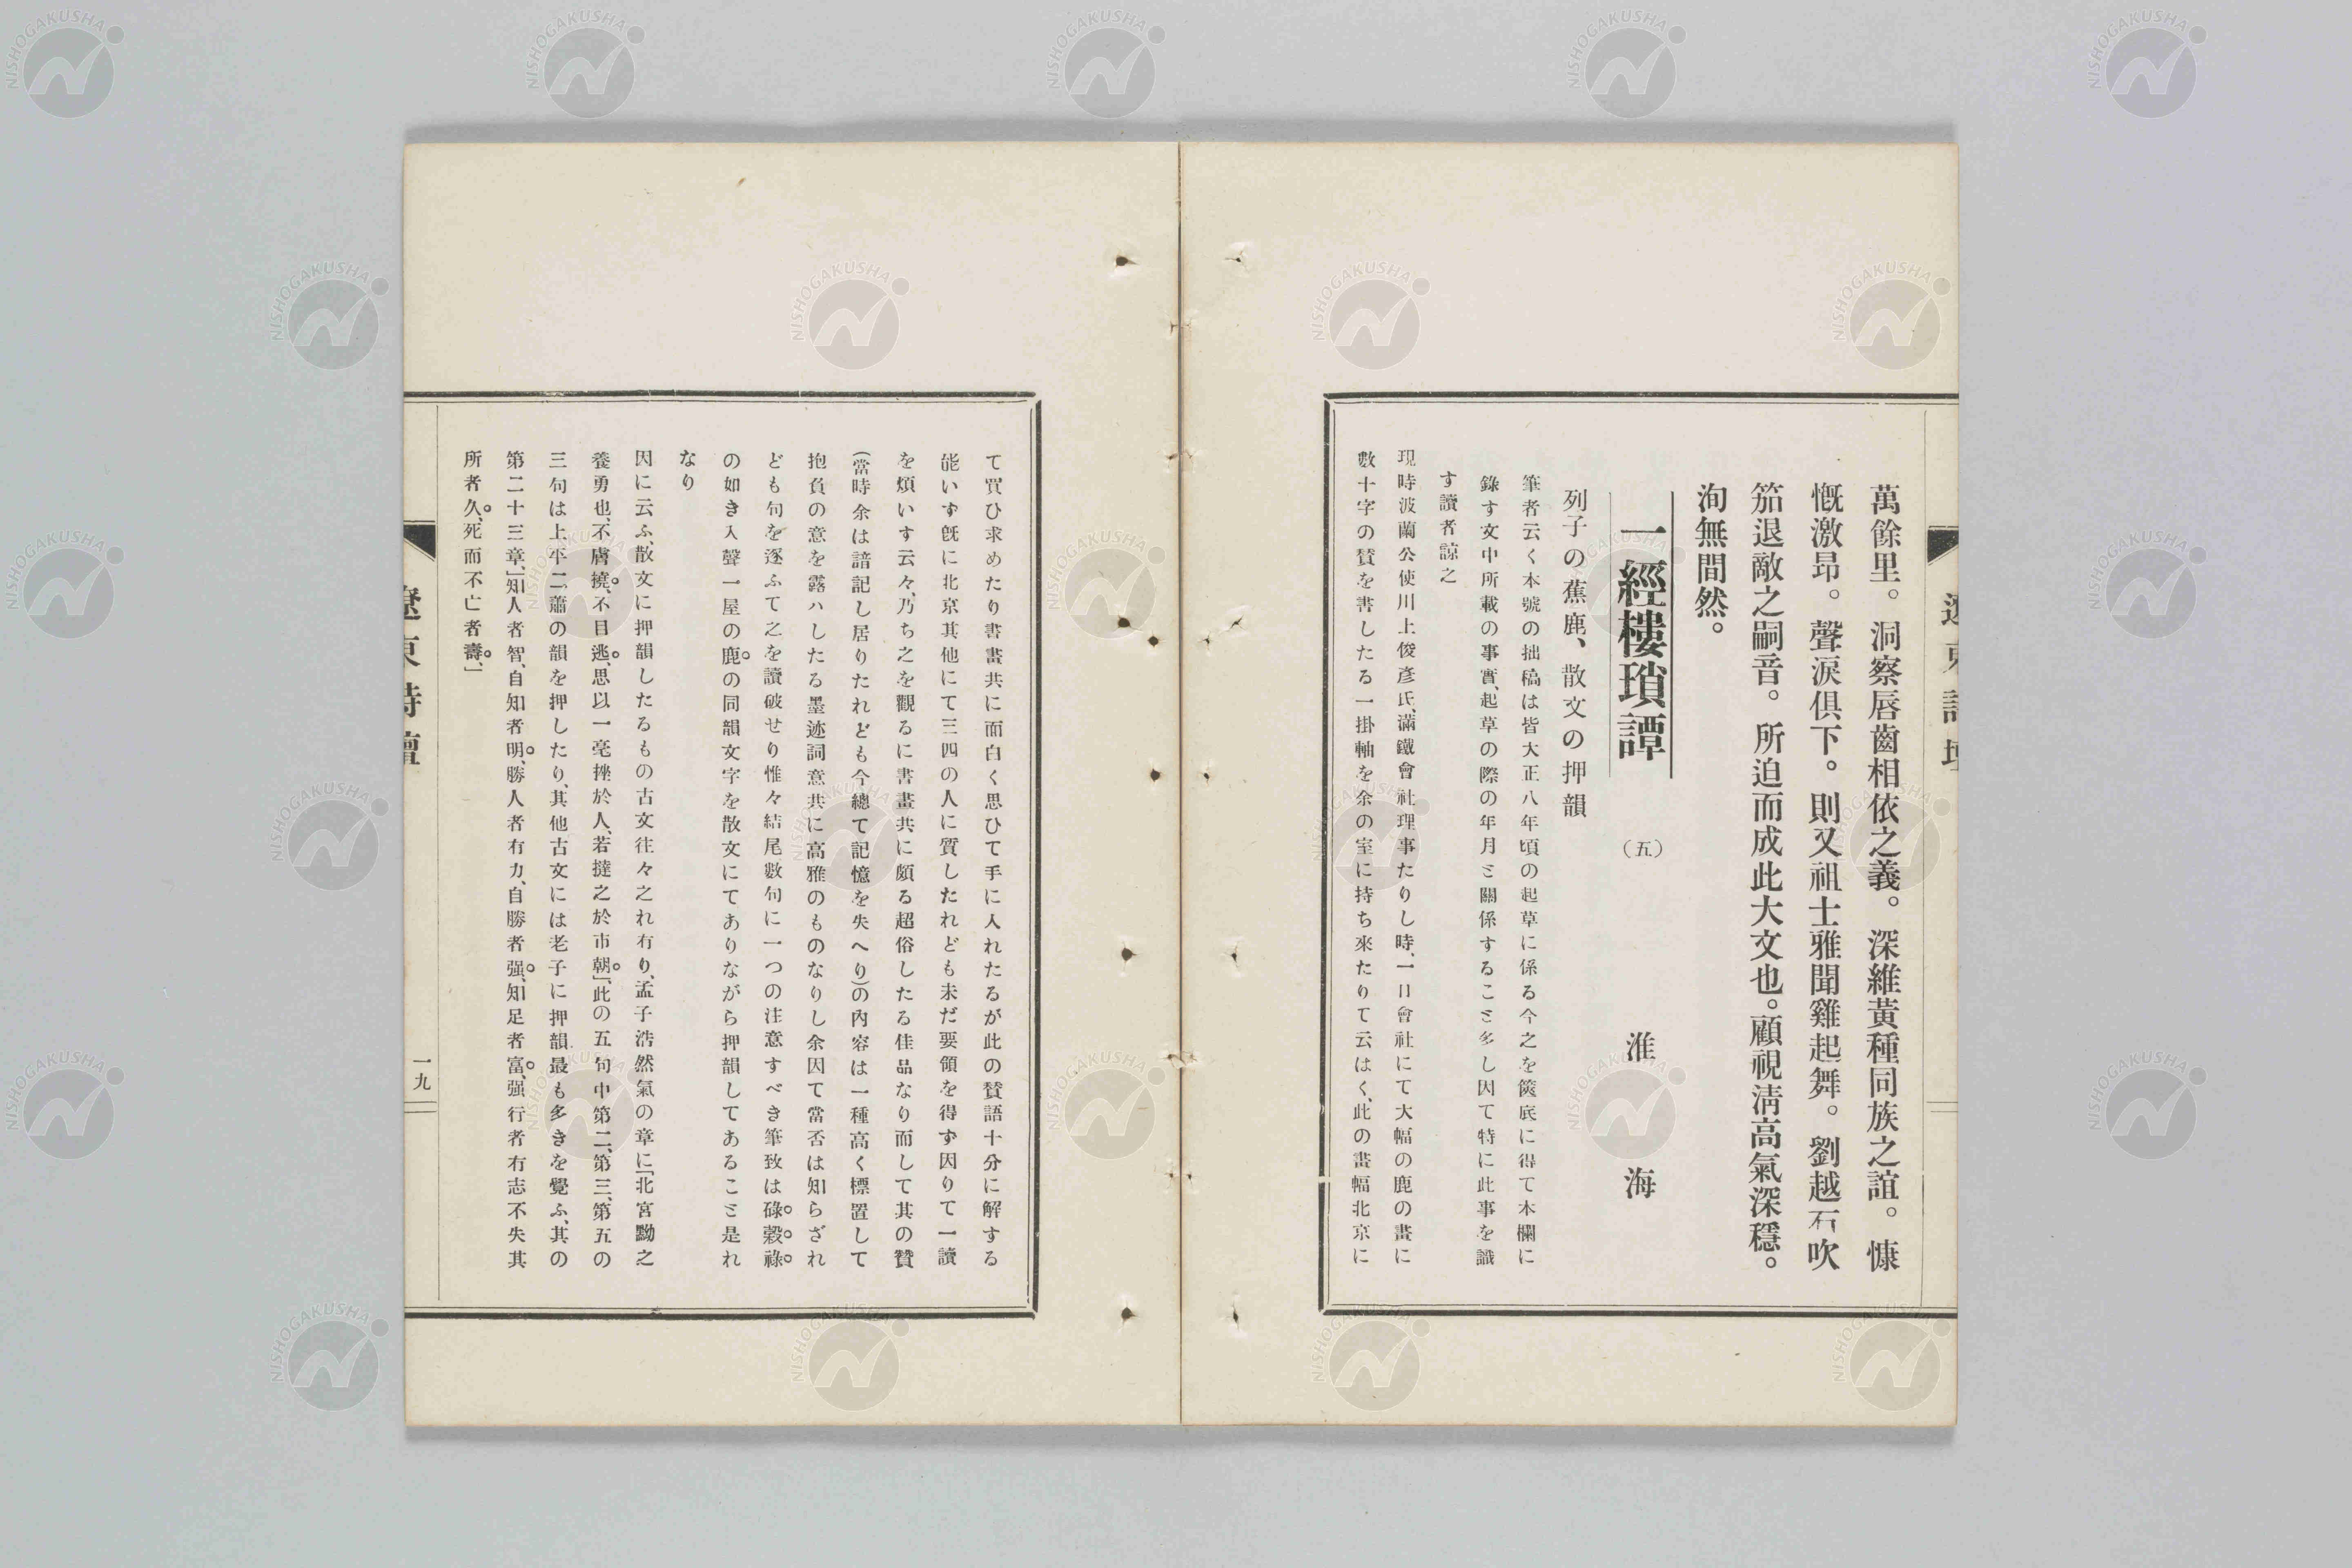 萬餘里。洞察唇齒相依之義。深維黃種同族之誼。慷
慨激昂。聲淚俱下。則又祖士雅聞雞起舞。劉越石吹
笳退敵之嗣音。所迫而成此大文也。顧視淸高氣深穩。
洵無間然。
一經樓瑣譚
(五)
淮海
列子の蕉鹿、散文の押韻
筆者云く本號の拙稿は皆大正八年頃の起草に係る今之を篋底に得て本欄に
錄す文中所載の事實、起草の際の年月と關係すること多し因て特に此事を識
す讀者諒之
現時波蘭公使川上俊彥氏、滿鐵會社理事たりし時、一日會社にて大幅の鹿の畫に
數十字の賛を書したる一掛軸を余の室に持ち來たりて云はく、此の畫幅北京に
て買ひ求めたり書畫共に面白く思ひて手に入れたるが此の賛語十分に解する
能いず旣に北京其他にて三四の人に質したれども未だ要領を得ず因りて一讀
を煩いす云々、乃ち之を觀るに書畫共に頗る超俗したる佳品なり而して其の贊
(當時余は諳記し居りたれども今總て記憶を失へり)の內容は一種高く標置して
抱負の意を露ハしたる墨迹詞意共に高雅のものなりし余因て當否は知らざれ
ども句を逐ふて之を讀破せり惟々結尾數句に一つの注意すべき筆致は碌。穀。祿。
の如き入聲一屋の鹿。の同韻文字を散文にてありながら押韻してあること是れ
なり
因に云ふ、散文に押韻したるもの古文往々之れ有り、孟子浩然氣の章に「北宮黝之
養勇也、不膚撓。、不目逃。、思以一毫挫於人、若撻之於市朝。」此の五句中第二、第三、第五の
三句は上平二蕭の韻を押したり、其他古文には老子に押韻最も多きを覺ふ、其の
第二十三章、「知人者智、自知者明。、勝人者有力、自勝者强。、知足者富。、强行者有志不失其
所者久。、死而不亡者壽。、」
遼東詩壇
一九